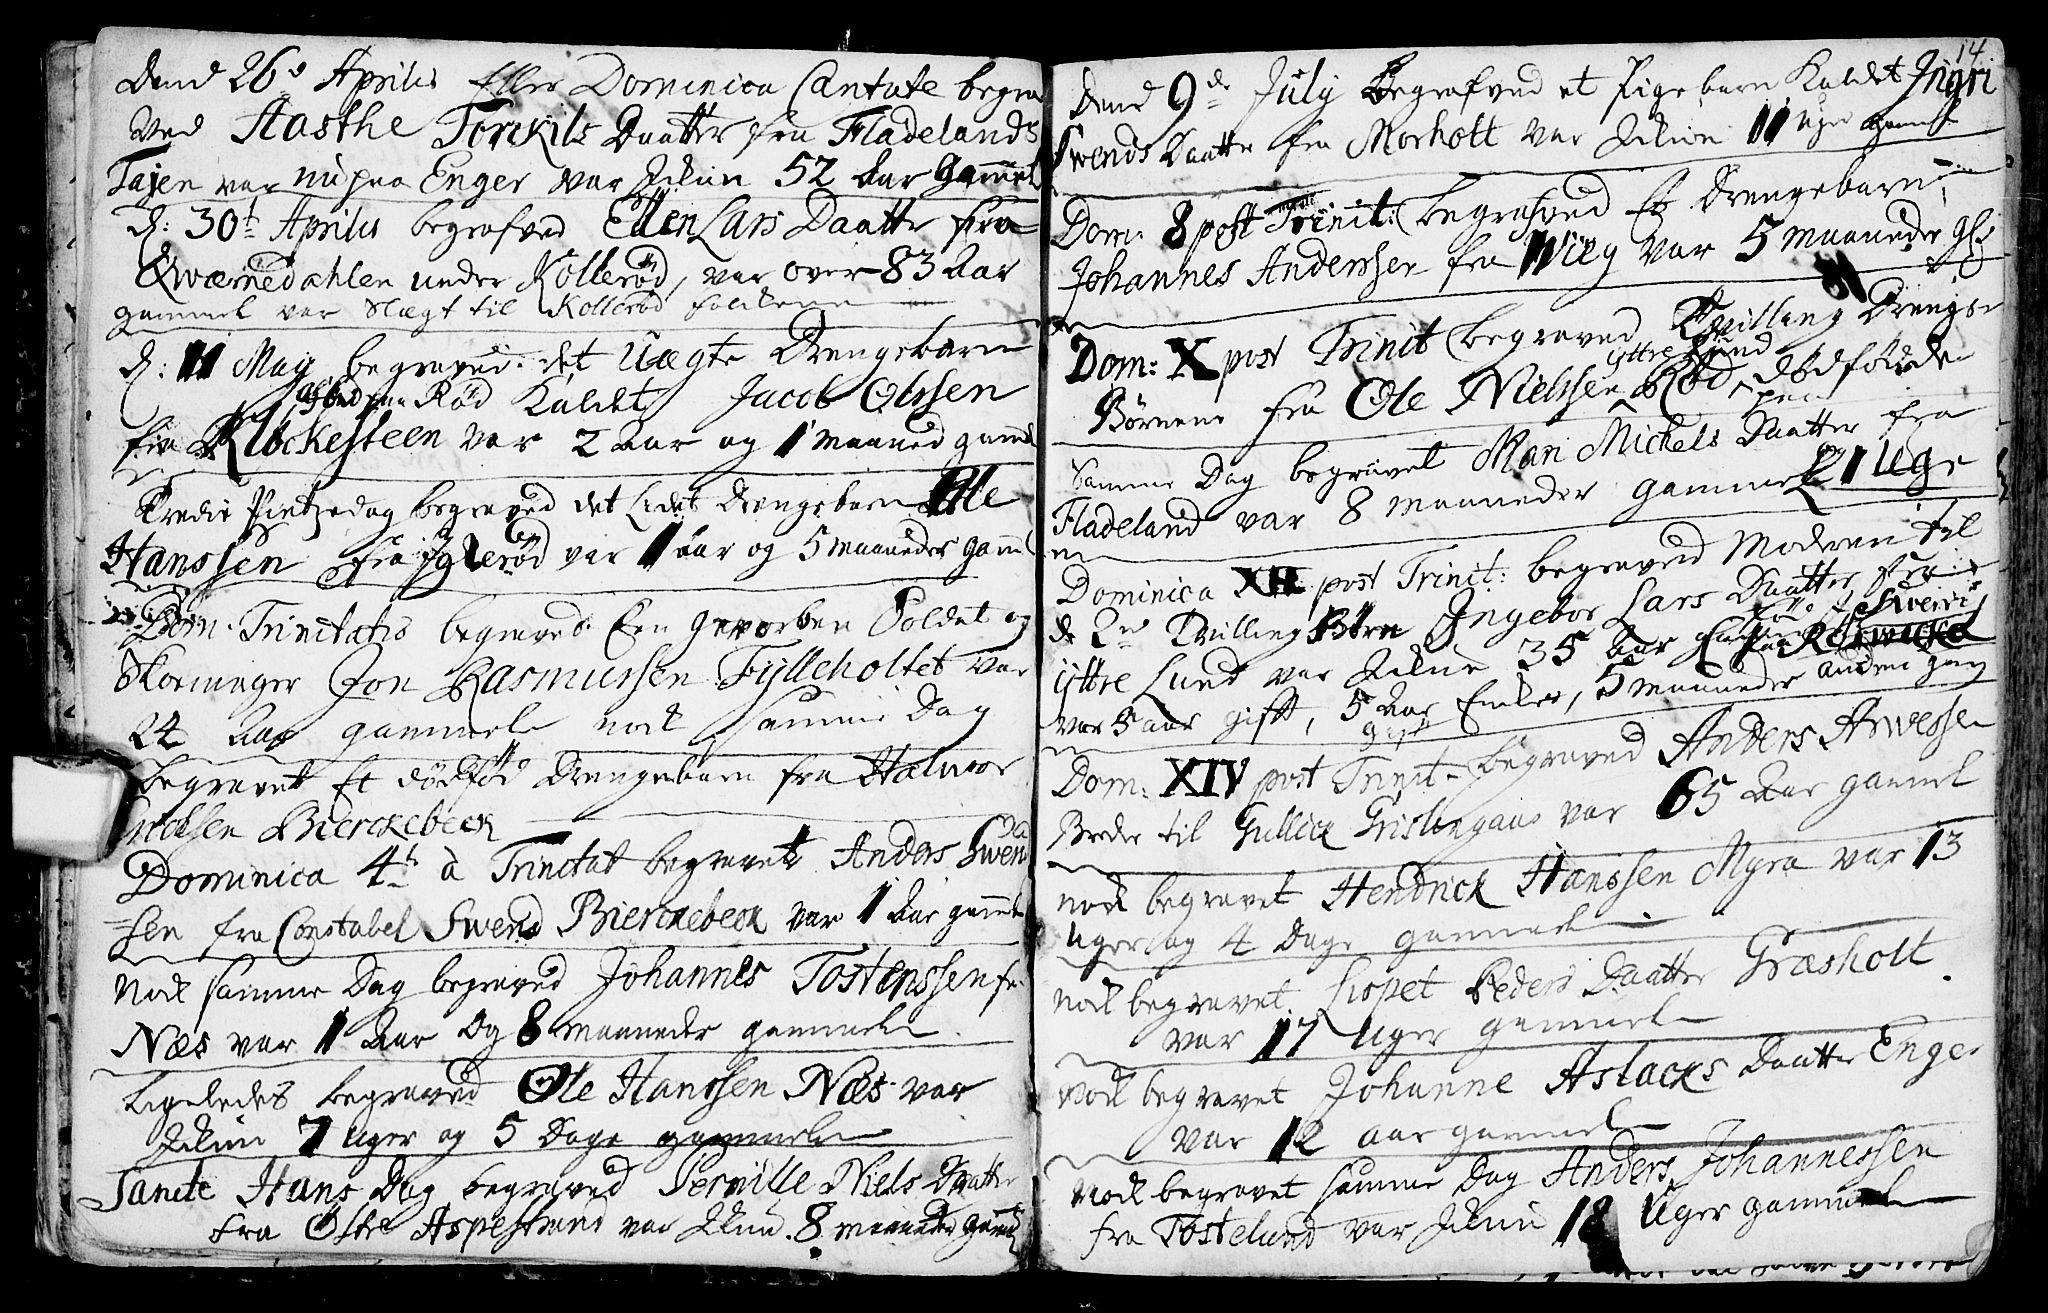 Dend 26de Aprilis Eller Dominica Cantate begra
ved Aasthe Torckils Daatter fra Fladelands
Tajen var nu paa Enger var Ickun 52 aar gamel
d: 30t Aprilis begrafved Ellen Lars Daatter fra
Qwærnedahlen under Kollerød, var over 83 aar
gammel var Slægt til Kollerød folckene
d: 11 May begraved det Uægte Drengebarn
Rød Kaldet Jacob Olssen
fra Klockesteen var 2 aar og 1 maaned gamel
Tredie Pintzedag begraved det Lidet drengebarn Ole
Hanssen fra Iglerød var 1 aar og 5 maaneder gamel
Dom. Trinitatis begraved Een Gevorben Soldat og
Skormager Jon Rasmussen Fylleholtet var
24 aar gammel nock samme Dag
begravet Et dødfød Drengebarn fra Halvor
Bierckebeck
Dominica 4t à Trinitat begravet Anders Swend
sen fra Constabel Swend Bierckebeck var 1 aar gammel
Nock samme Dag begraved Johannes Tostenssen fra
Næs var 1 aar og 8 maaneder gammel.
Ligeledes begraved Ole Hanssen Næs var
Ickun 7 uger og 5 Dage gammel
Sancte Hans Dag begraved Pernille Niels Daatter
fra Østre Aspestrand var Ickun 8 maaneder gamel
14
Dend 9de July Begrafved et Pigebarn Kaldet Ingri
Swends Daatter fra Morholt var Ickun 11 uger gamel
Dom: 8 post Trinit: begrafved Et Drengebarn
Johannes Anderssen fra Wieg var 5 maaneder gl:
Dom: X post Trinit begraved Tvilling Drenge
yttre Lund
Børnene fra Ole Nielssen Rød dødfødde
Samme Dag begravet Mari Michels Daatter fra
Fladeland var 8 maaneder gammel og 1 Uge
Dominica XII post Trinit: begraved Moderen til
de 2de Tvilling Børn Ingebor Lars Daatter fra
yttre Lund var Ickun 35 aar
var 5 aar gift, 5 aar Encke, 5 maaneder anden gang
gift
Dom: XIV post Trinit begraved Anders Arwessen
Broder til Gullick Grislingaas var 65 aar gammel
nock begravet Hendrick Hanssen Myra var 13
uger og 4 Dage gammel
nock begravet Lispet Peders Daatter Græsholt
var 17 uger gammel
Nock begravet Johanne Aslacks Daatter Enger
var 12 aar gammel
Nock begravet samme Dag Anders Johannessen
fra Tostelund var Ickun 18 Uger gammel